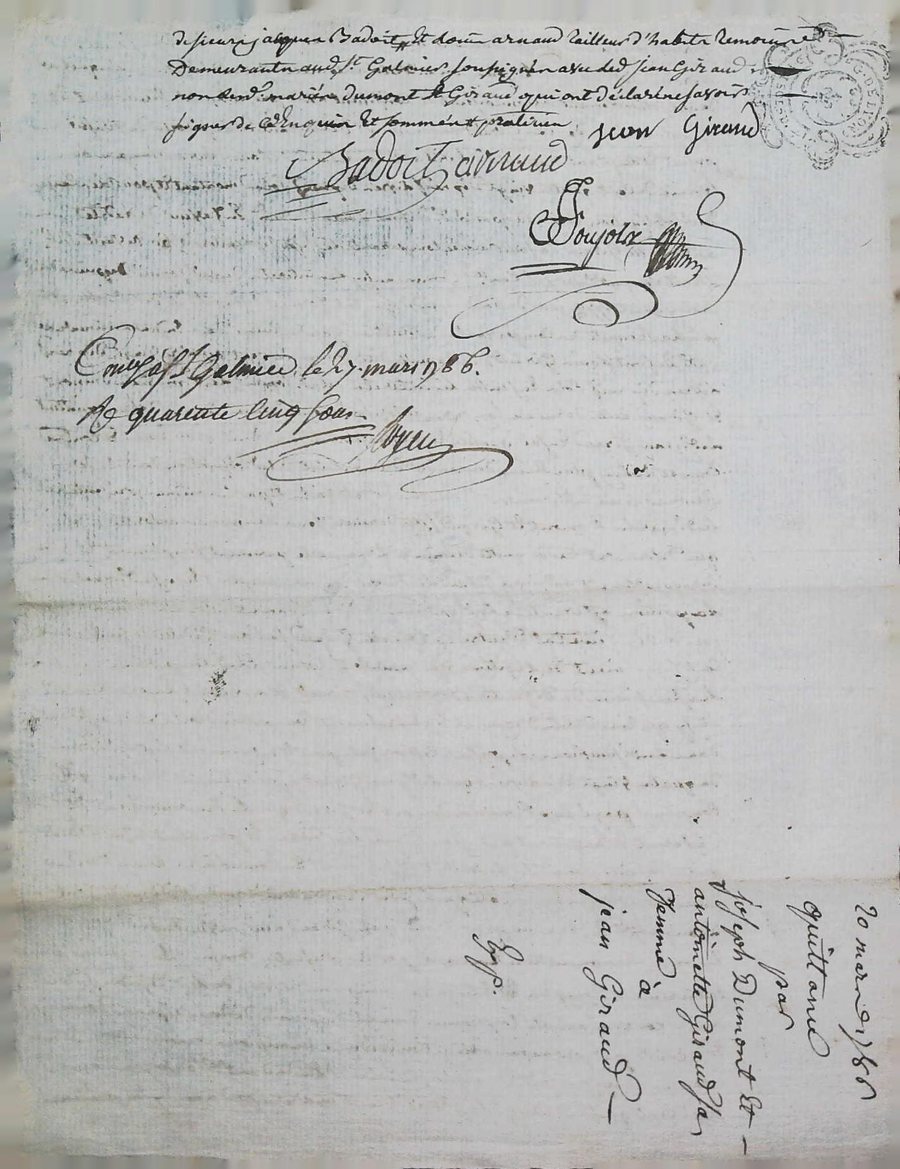 de sieurs jacques Badoit, et arnaud tailleur d'habits temoins
Demeurants aud. St. Galmier soussignés avec led. jean Giraud
non lesd. mariés dumont et Giraud qui ont déclaré ne savoir
signer de ce Enquis et sommés
jean Giraud
Badoit arnaud
Poujolx
a St Galmier le 27 mars 1786.
Rs quarente Cinq sous
20 mars 1786
quittance
par
joseph Dumont Et
antoinette Giraud sa
femme
à
jean Giraud
Exp.
G. DE LYON